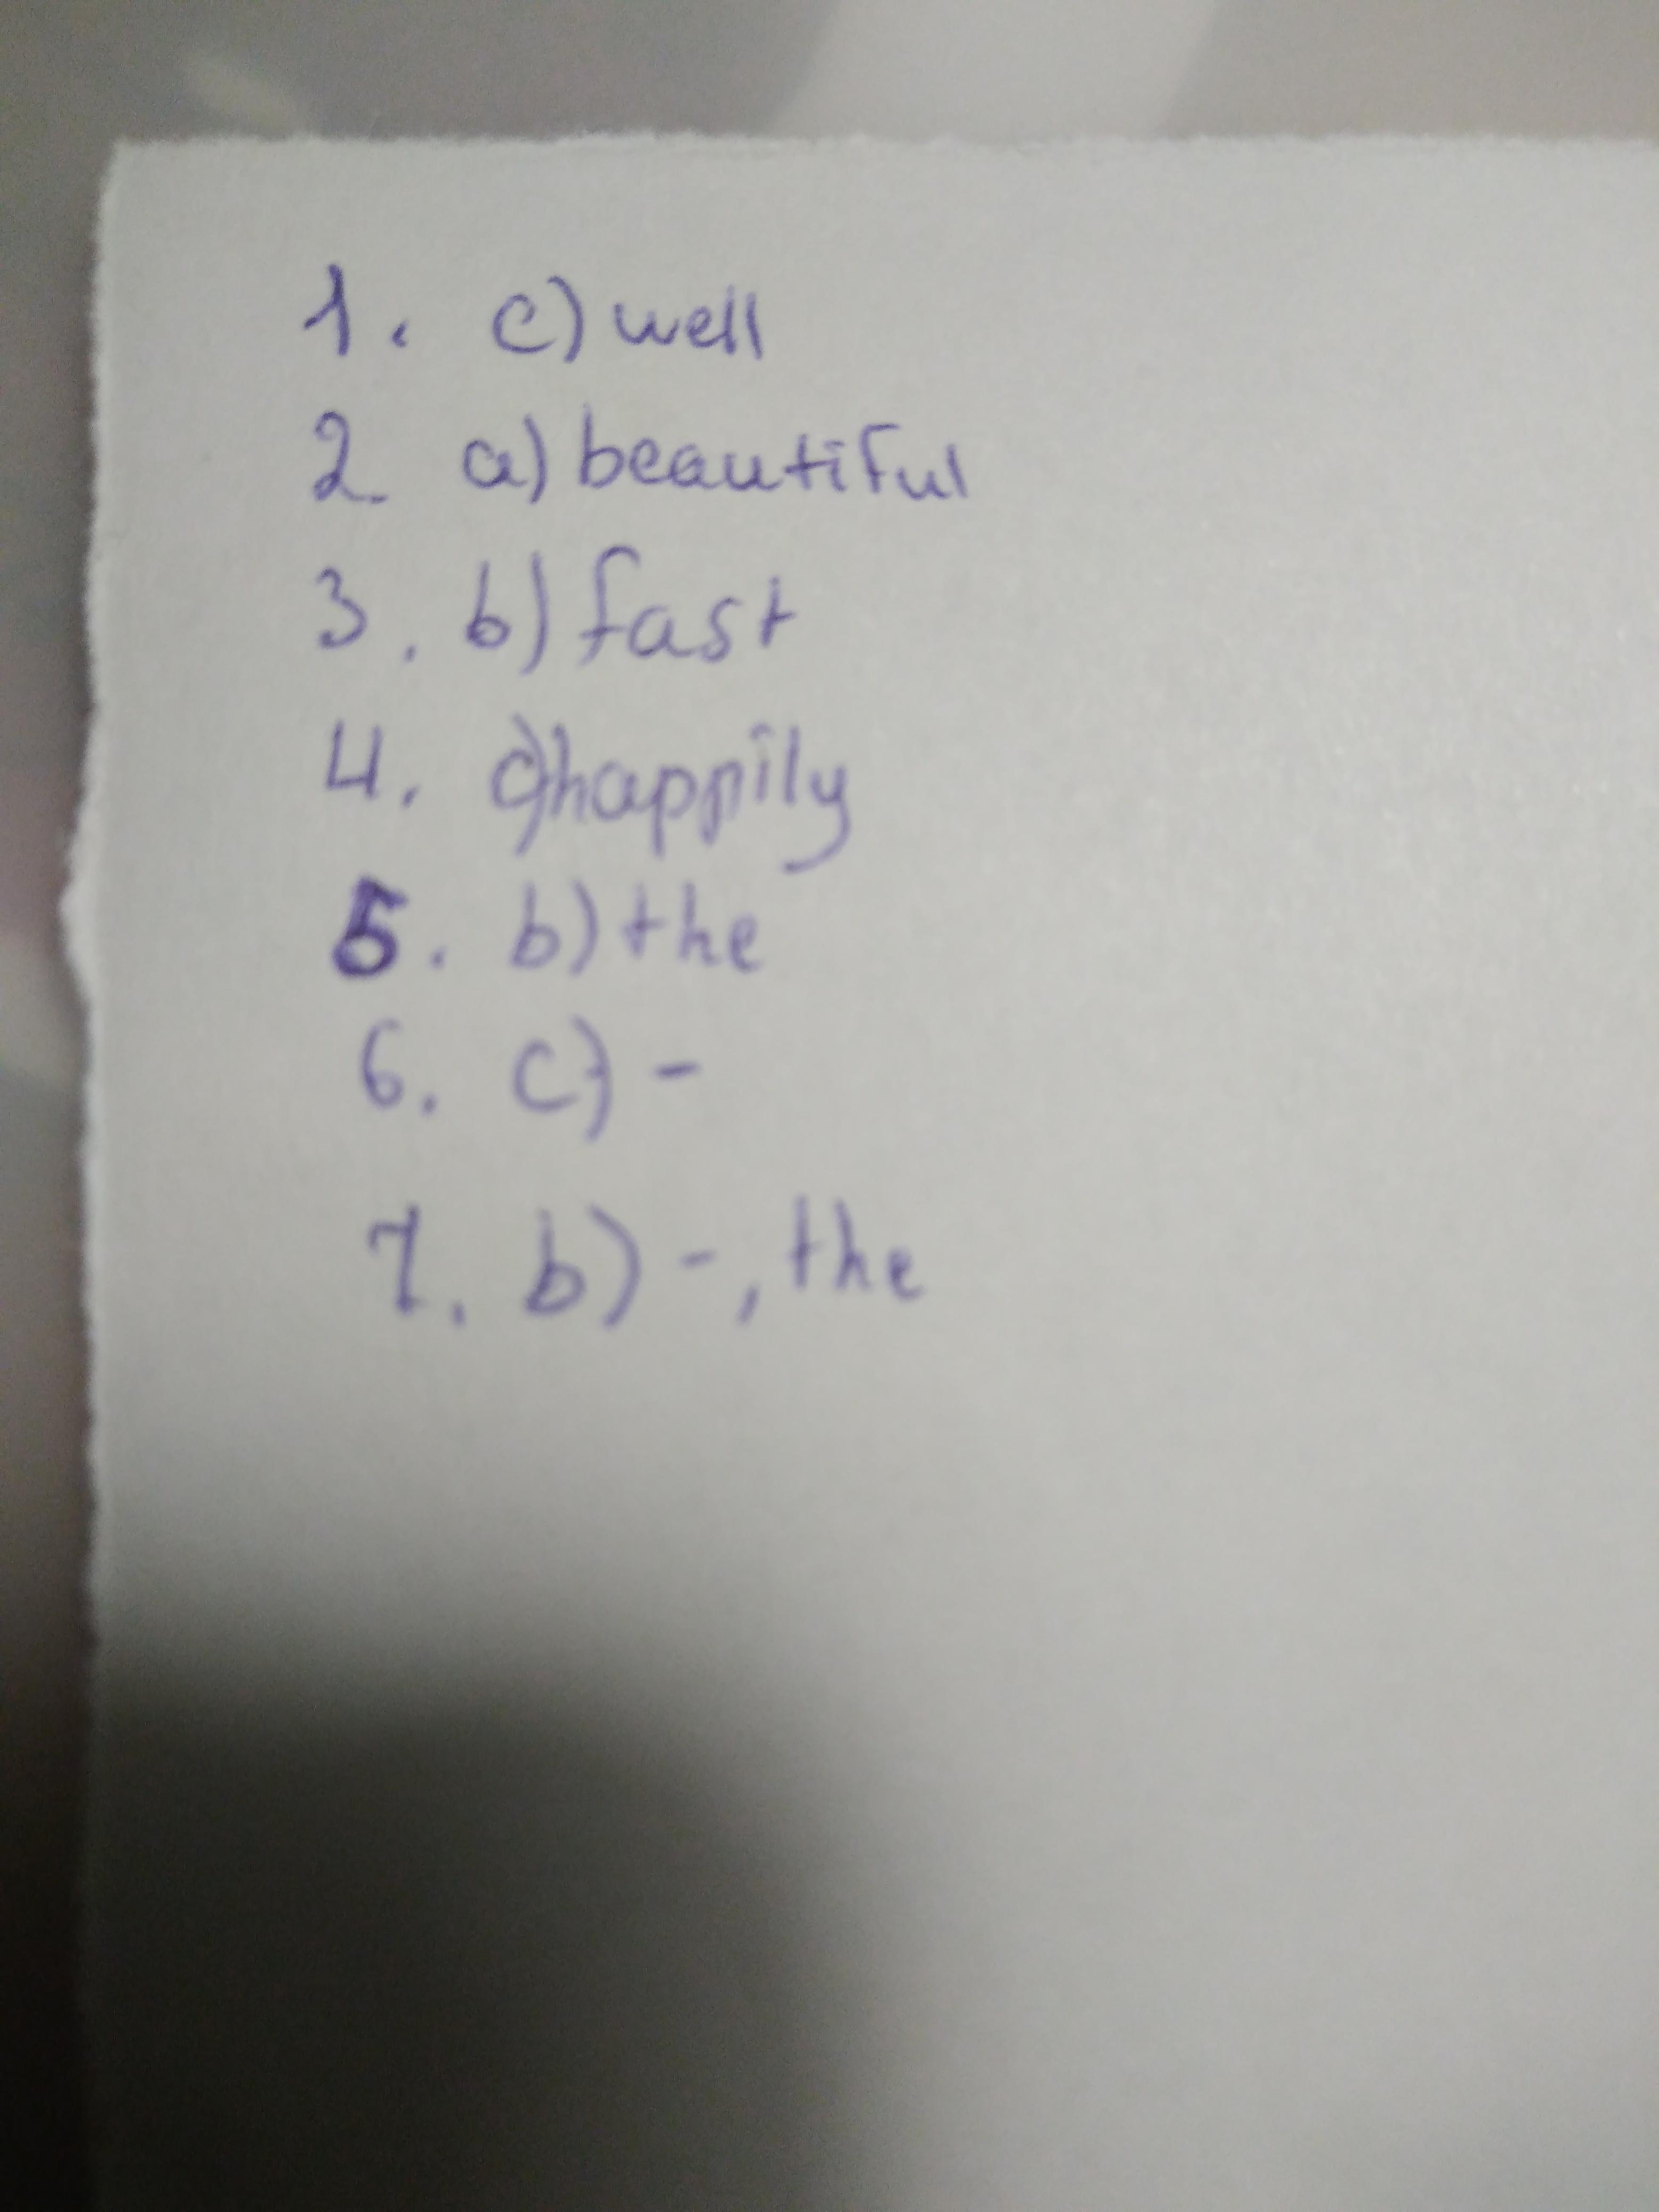 1. c) well
2. a) beautiful
3. b) fast
4. c) happily
5. b) the
6. c) -
7. b) -, the